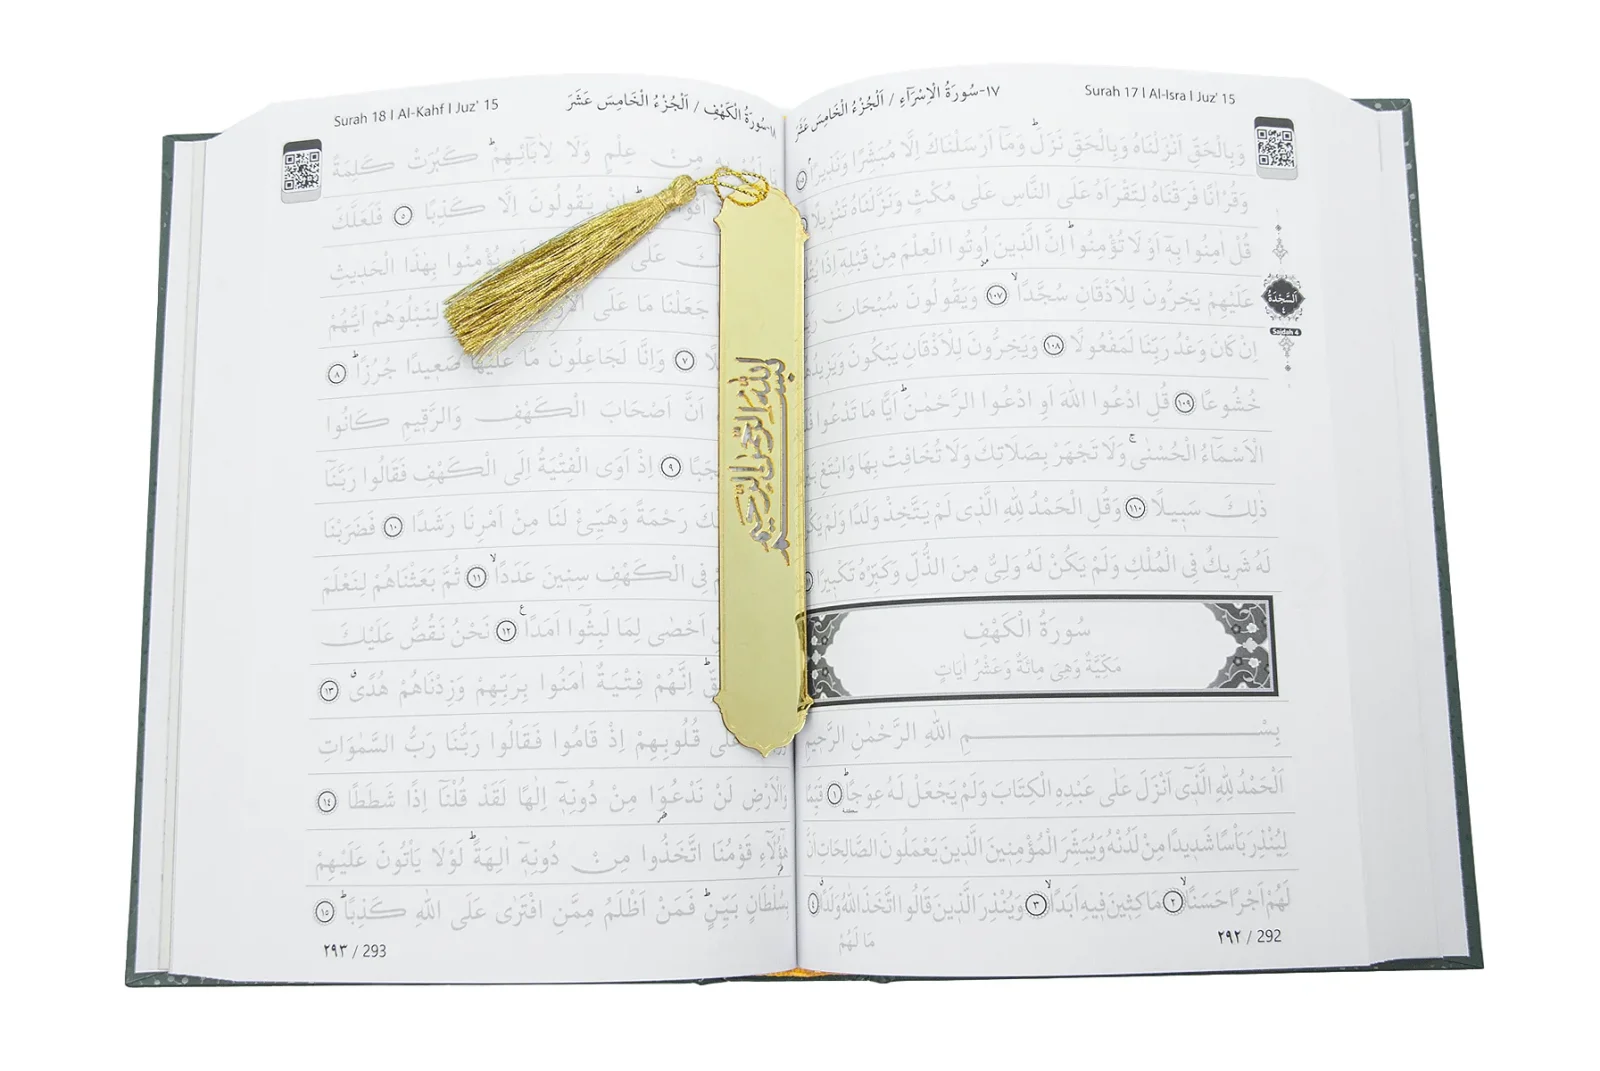 Surah 17 I Al-Isra I Juz' 15
١٧-سُورَةُ الْاِسْرَٓاءِ / اَلْجُزْءُ الْخَامِسَ عَشَرَ
وَبِالْحَقِّ اَنْزَلْنَاهُ وَبِالْحَقِّ نَزَلَۜ وَمَٓا اَرْسَلْنَاكَ اِلَّا مُبَشِّرًا وَنَذِيرًاۢ
وَقُرْاٰنًا فَرَقْنَاهُ لِتَقْرَاَهُ عَلَى النَّاسِ عَلٰى مُكْثٍ وَنَزَّلْنَاهُ تَنْزِيلًا
قُلْ اٰمِنُوا بِهِٓ اَوْ لَا تُؤْمِنُواۜ اِنَّ الَّذِينَ اُوتُوا الْعِلْمَ مِنْ قَبْلِهِٓ اِذَا
عَلَيْهِمْ يَخِرُّونَ لِلْاَذْقَانِ سُجَّدًاۙ ١٠٧ وَيَقُولُونَ سُبْحَانَ
اِنْ كَانَ وَعْدُ رَبِّنَا لَمَفْعُولًا ١٠٨ وَيَخِرُّونَ لِلْاَذْقَانِ يَبْكُونَ
خُشُوعًا ١٠٩ قُلِ ادْعُوا اللّٰهَ اَوِ ادْعُوا الرَّحْمٰنَۜ اَيًّا مَا تَدْعُوا
الْاَسْمَٓاءُ الْحُسْنٰىۚ وَلَا تَجْهَرْ بِصَلَاتِكَ وَلَا تُخَافِتْ بِهَا وَابْتَغِ
ذٰلِكَ سَبِيلًا ١١٠ وَقُلِ الْحَمْدُ لِلّٰهِ الَّذِى لَمْ يَتَّخِذْ وَلَدًا وَلَمْ
لَهُ شَرِيكٌ فِى الْمُلْكِ وَلَمْ يَكُنْ لَهُ وَلِىٌّ مِنَ الذُّلِّ وَكَبِّرْهُ تَكْبِيرًا
السَّجْدَةُ
٤
Sajdah 4
سُورَةُ الْكَهْفِ
مَكِّيَّةٌ وَهِىَ مِائَةٌ وَعَشْرُ اٰيَاتٍ
بِسْـــمِ اللّٰهِ الرَّحْمٰنِ الرَّحِيمِ
اَلْحَمْدُ لِلّٰهِ الَّذِٓى اَنْزَلَ عَلٰى عَبْدِهِ الْكِتَابَ وَلَمْ يَجْعَلْ لَهُ عِوَجًاۜ ١ قَيِّمًا
لِيُنْذِرَ بَاْسًا شَدِيدًا مِنْ لَدُنْهُ وَيُبَشِّرَ الْمُؤْمِنِينَ الَّذِينَ يَعْمَلُونَ الصَّالِحَاتِ اَنَّ
لَهُمْ اَجْرًا حَسَنًاۙ ٢ مَاكِثِينَ فِيهِ اَبَدًاۙ ٣ وَيُنْذِرَ الَّذِينَ قَالُوا اتَّخَذَ اللّٰهُ وَلَدًاۗ ٤
مَا لَهُمْ
٢٩٢ / 292
١٨-سُورَةُ الْكَهْفِ / اَلْجُزْءُ الْخَامِسَ عَشَرَ
Surah 18 I Al-Kahf I Juz' 15
مِنْ عِلْمٍ وَلَا لِاٰبَٓائِهِمْۜ كَبُرَتْ كَلِمَةً
يَقُولُونَ اِلَّا كَذِبًا ٥ فَلَعَلَّكَ
عَلٰٓى يُؤْمِنُوا بِهٰذَا الْحَدِيثِ
جَعَلْنَا مَا عَلَى لِنَبْلُوَهُمْ اَيُّهُمْ
٧ وَاِنَّا لَجَاعِلُونَ مَا عَلَيْهَا صَعِيدًا جُرُزًاۜ ٨
اَنَّ اَصْحَابَ الْكَهْفِ وَالرَّقِيمِ كَانُوا
٩ اِذْ اَوَى الْفِتْيَةُ اِلَى الْكَهْفِ فَقَالُوا رَبَّنَٓا
رَحْمَةً وَهَيِّئْ لَنَا مِنْ اَمْرِنَا رَشَدًا ١٠ فَضَرَبْنَا
فِى الْكَهْفِ سِنِينَ عَدَدًاۙ ١١ ثُمَّ بَعَثْنَاهُمْ لِنَعْلَمَ
اَحْصٰى لِمَا لَبِثُٓوا اَمَدًا۟ ١٢ نَحْنُ نَقُصُّ عَلَيْكَ
اِنَّهُمْ فِتْيَةٌ اٰمَنُوا بِرَبِّهِمْ وَزِدْنَاهُمْ هُدًىۗ ١٣
قُلُوبِهِمْ اِذْ قَامُوا فَقَالُوا رَبُّنَا رَبُّ السَّمٰوَاتِ
وَالْاَرْضِ لَنْ نَدْعُوَا مِنْ دُونِهِٓ اِلٰهًا لَقَدْ قُلْنَٓا اِذًا شَطَطًا ١٤
هٰٓؤُ۬لَٓاءِ قَوْمُنَا اتَّخَذُوا مِنْ دُونِهِٓ اٰلِهَةًۜ لَوْلَا يَاْتُونَ عَلَيْهِمْ
بِسُلْطَانٍ بَيِّنٍۜ فَمَنْ اَظْلَمُ مِمَّنِ افْتَرٰى عَلَى اللّٰهِ كَذِبًاۜ ١٥
٢٩٣ / 293
بسم الله الرحمن الرحيم